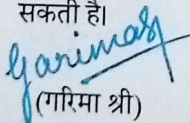 सकती है।
Garimas
(गरिमा श्री)